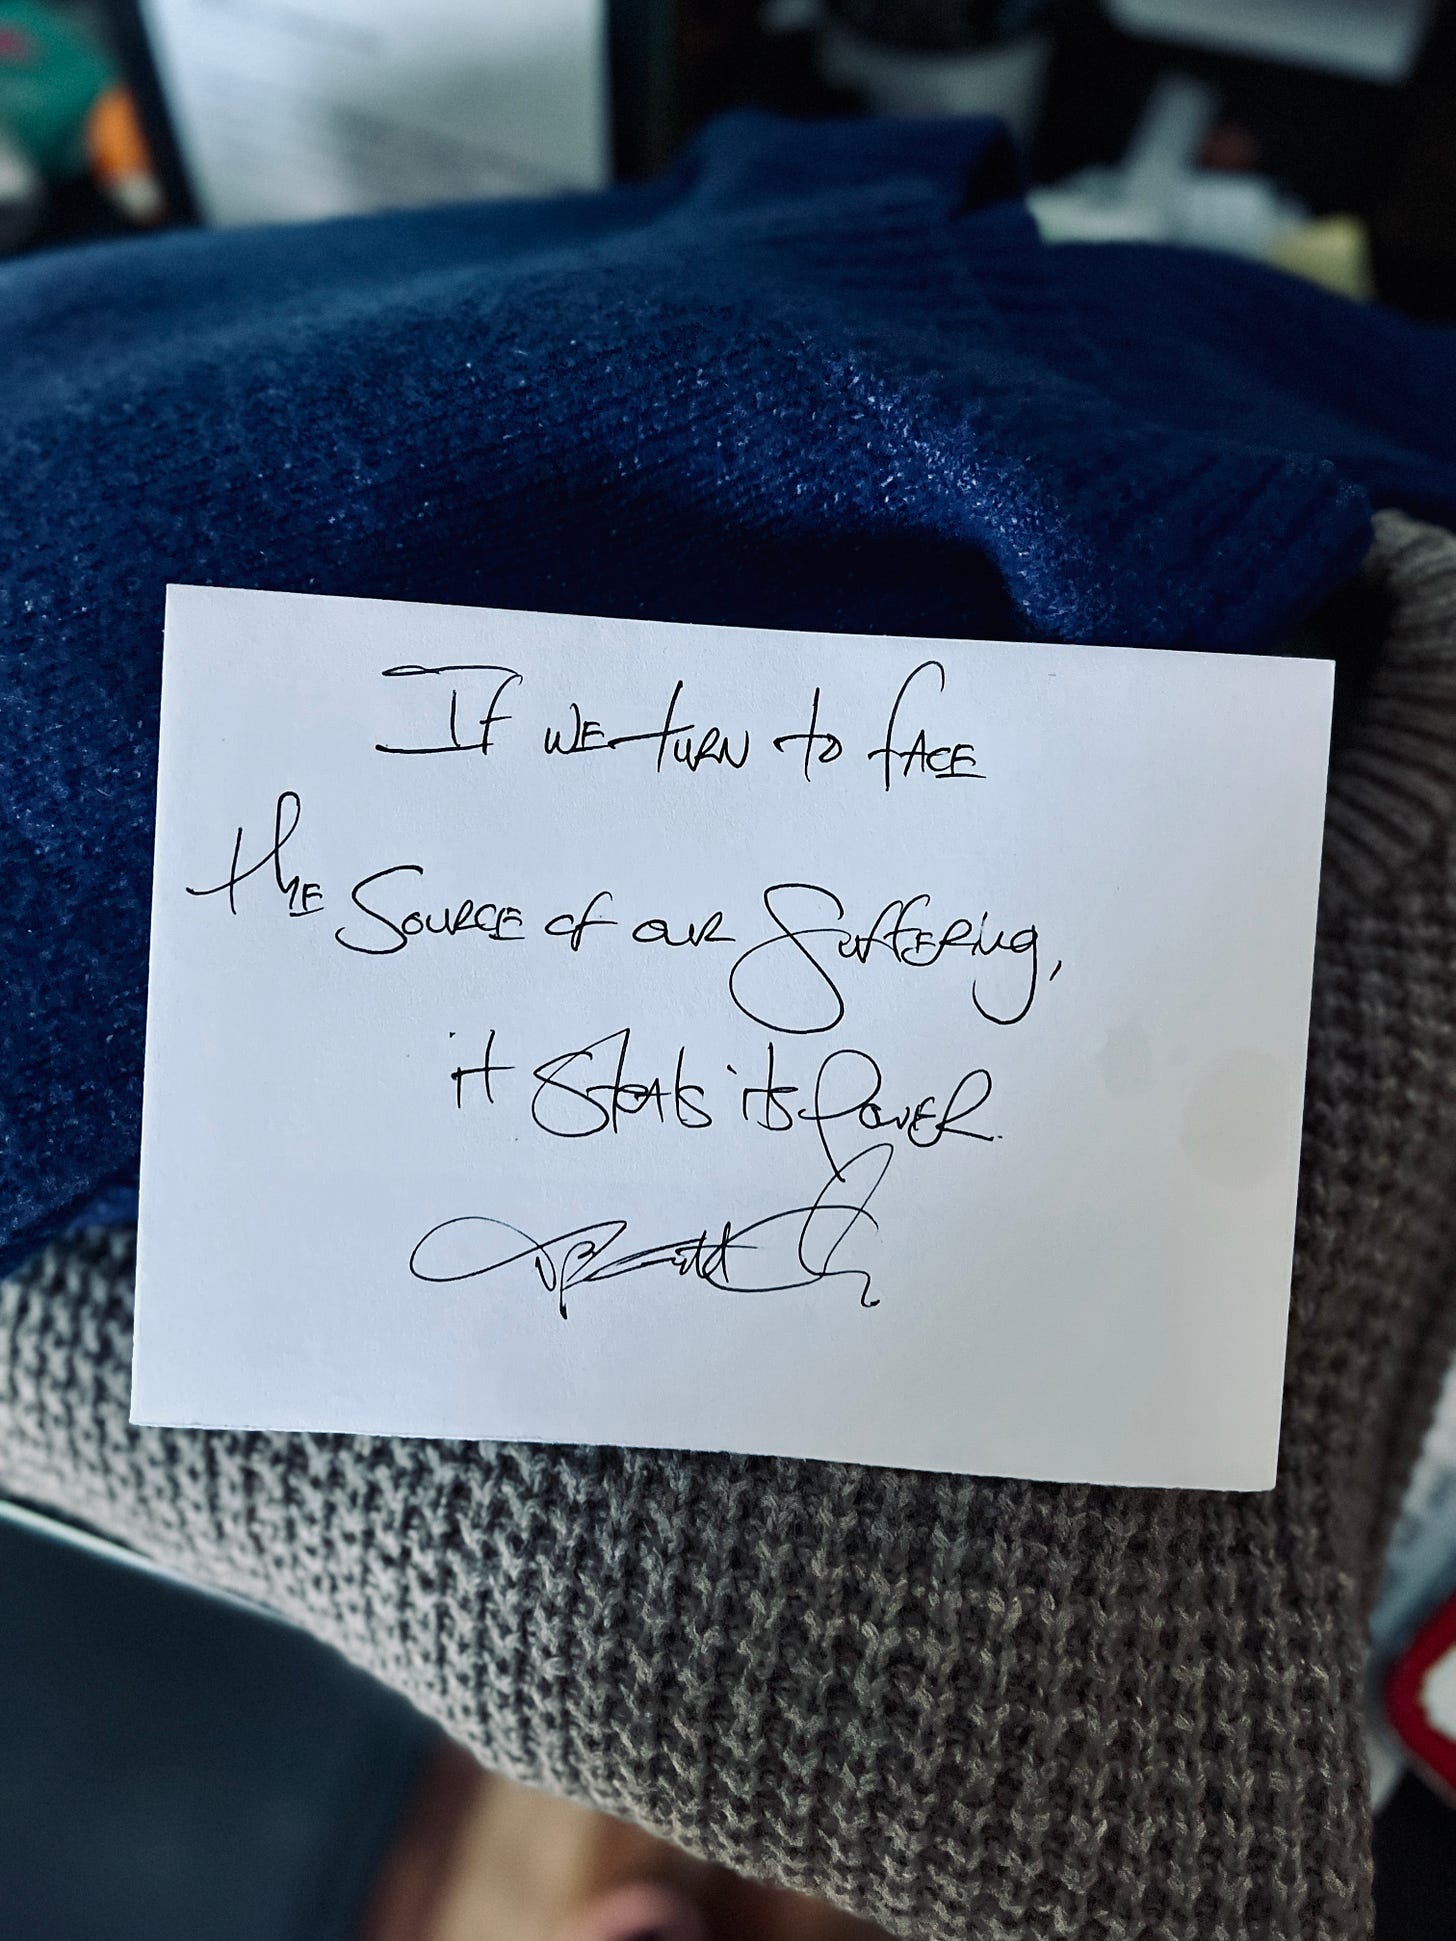 If we turn to face
the Source of our Suffering,
it Steals its Power.